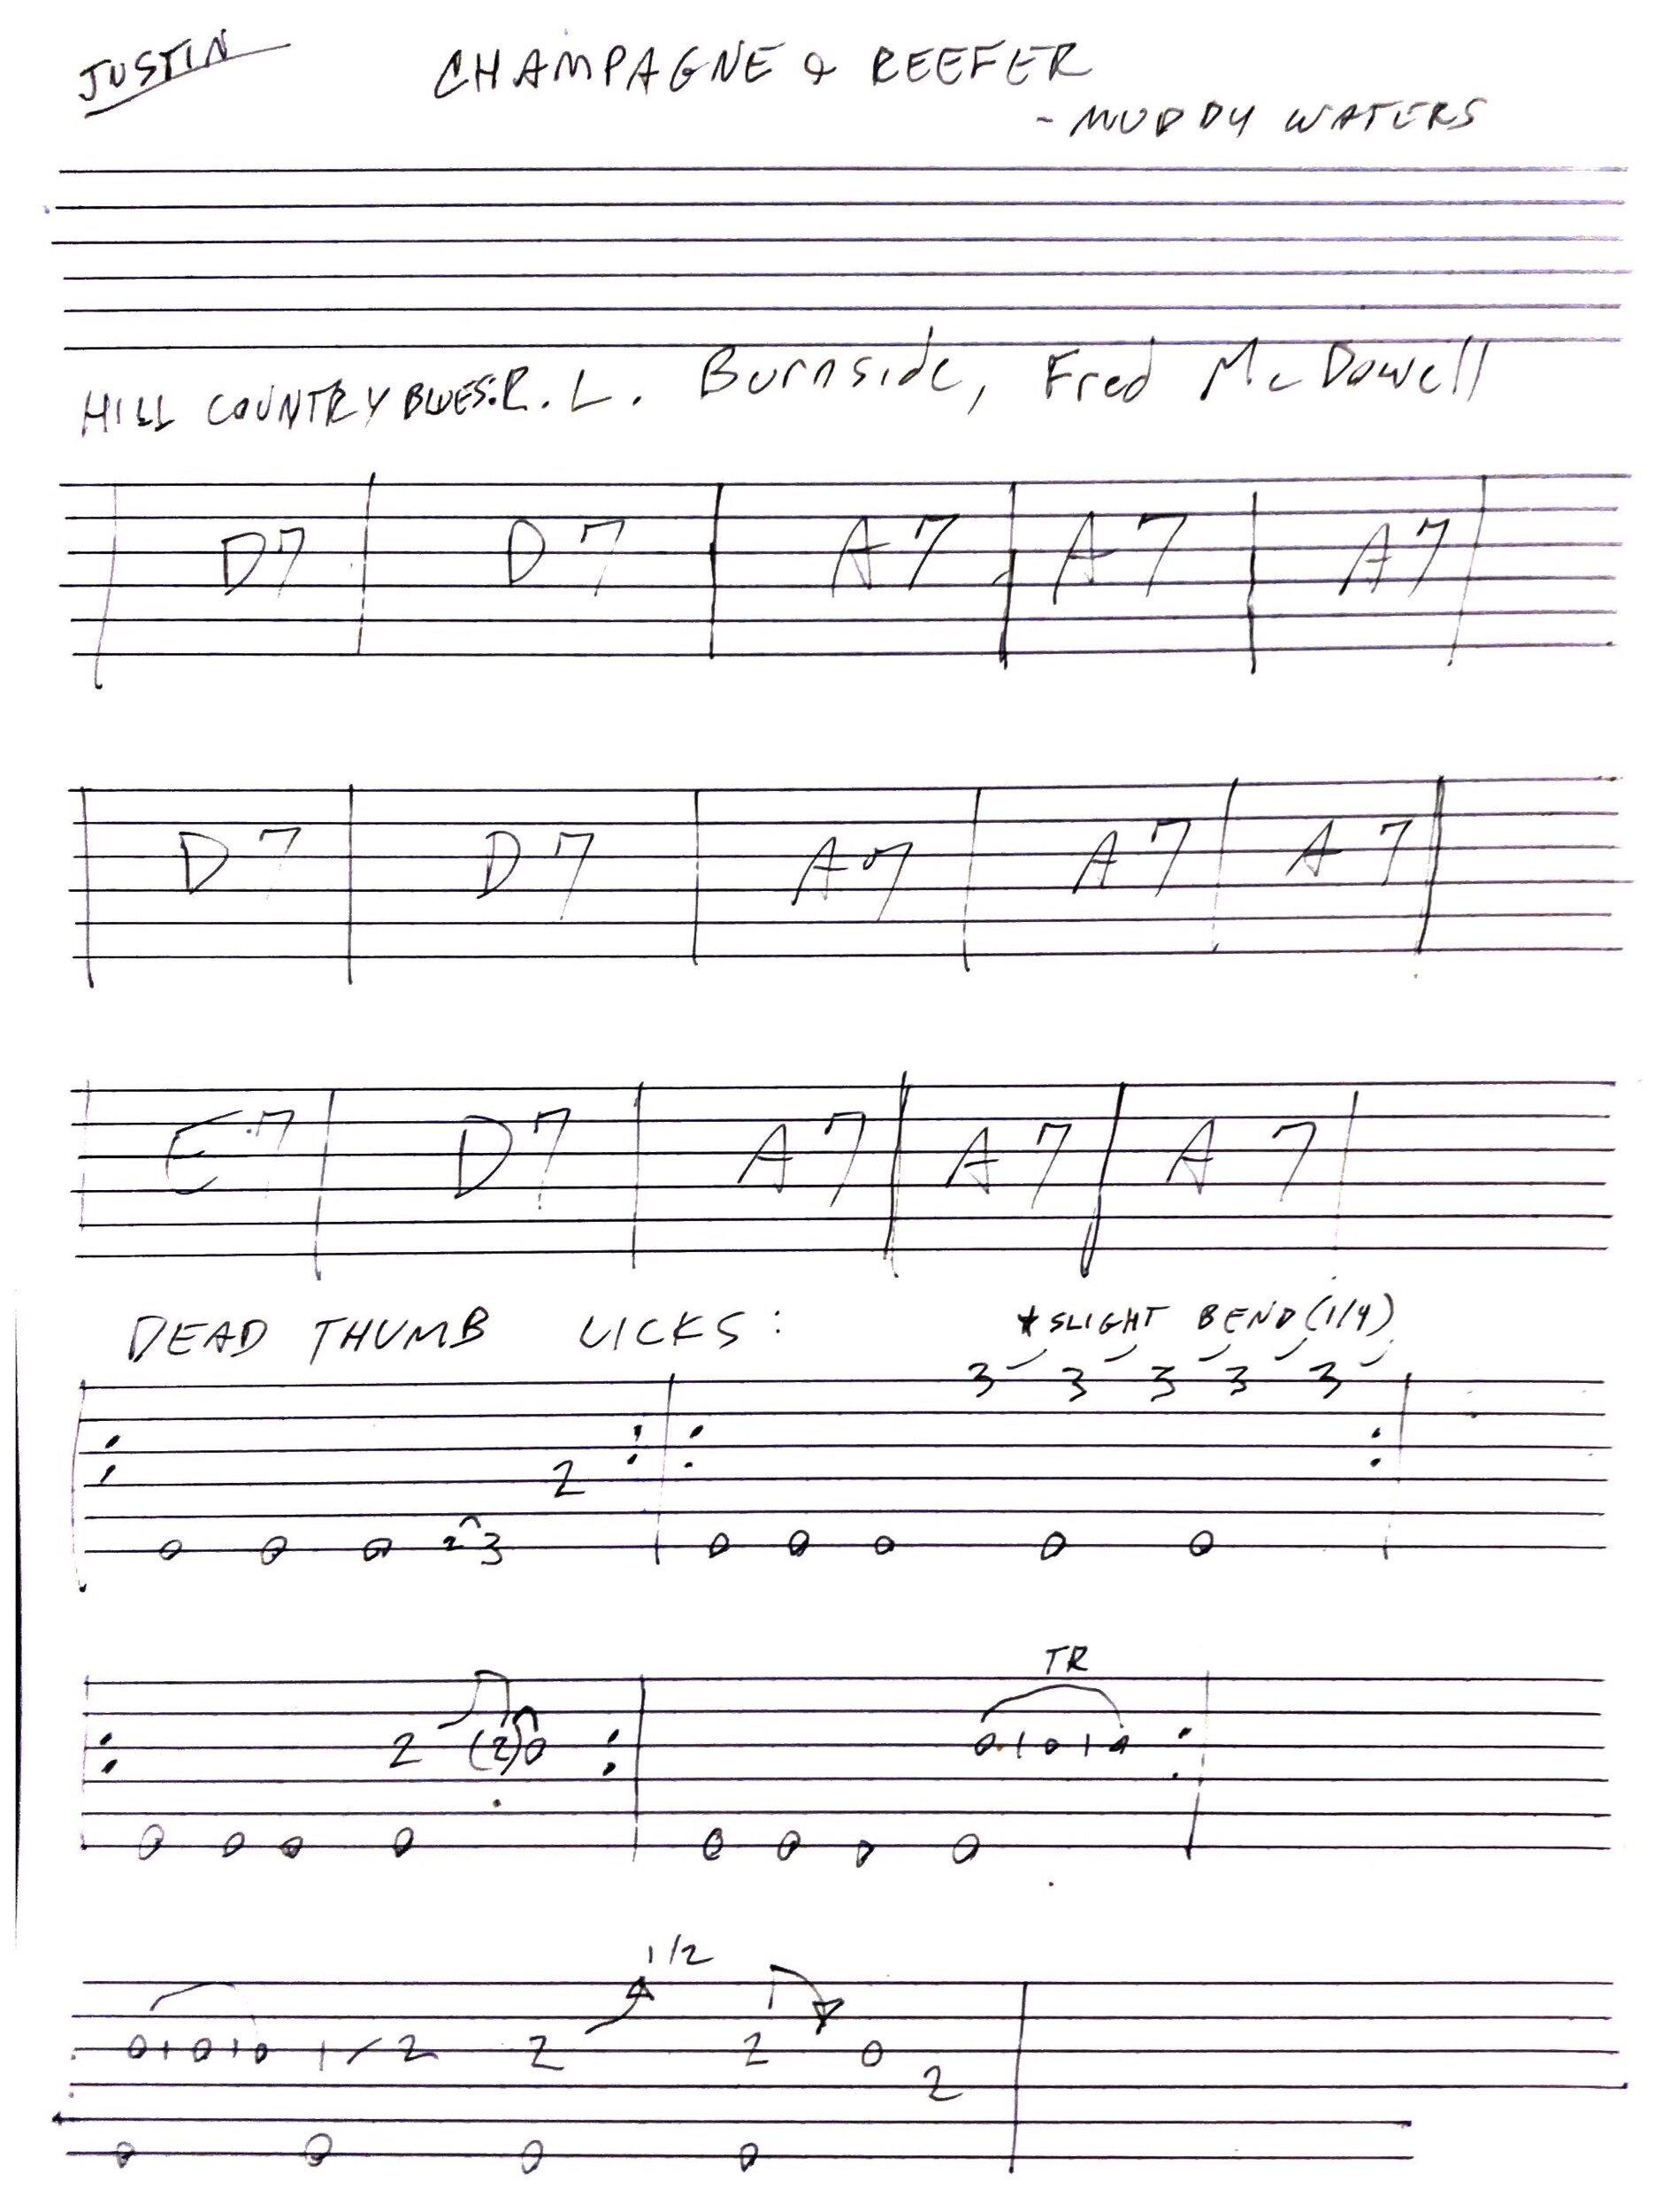 JUSTIN
CHAMPAGNE & REEFER
- MUDDY WATERS
HILL COUNTRY BLUES: R. L. Burnside, Fred McDowell
D7 D7 A7 A7 A7
D7 D7 A7 A7 A7
E7 D7 A7 A7 A7
DEAD THUMB LICKS:
*SLIGHT BEND (1/4)
3 3 3 3 3
2
0 0 0 2 3 0 0 0 0 0
TR
2 (2) 0 0 1 0 1 0
0 0 0 0 0 0 0 0
1/2
0 1 0 1 0 1 / 2 2 2 0
2
0 0 0 0